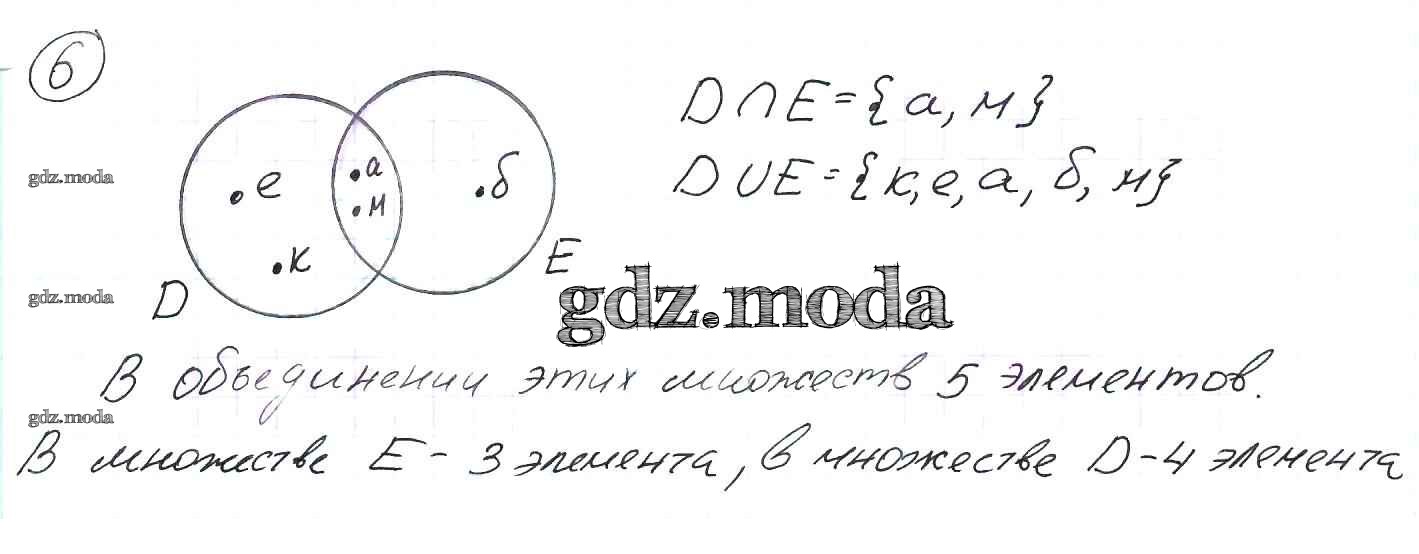 6
D ∩ E = {а, м}
D ∪ E = {к, е, а, б, м}
gdz.moda
е
а
м
б
к
D
E
gdz.moda
gdz.moda
В объединении этих множеств 5 элементов.
gdz.moda
В множестве E - 3 элемента, в множестве D - 4 элемента